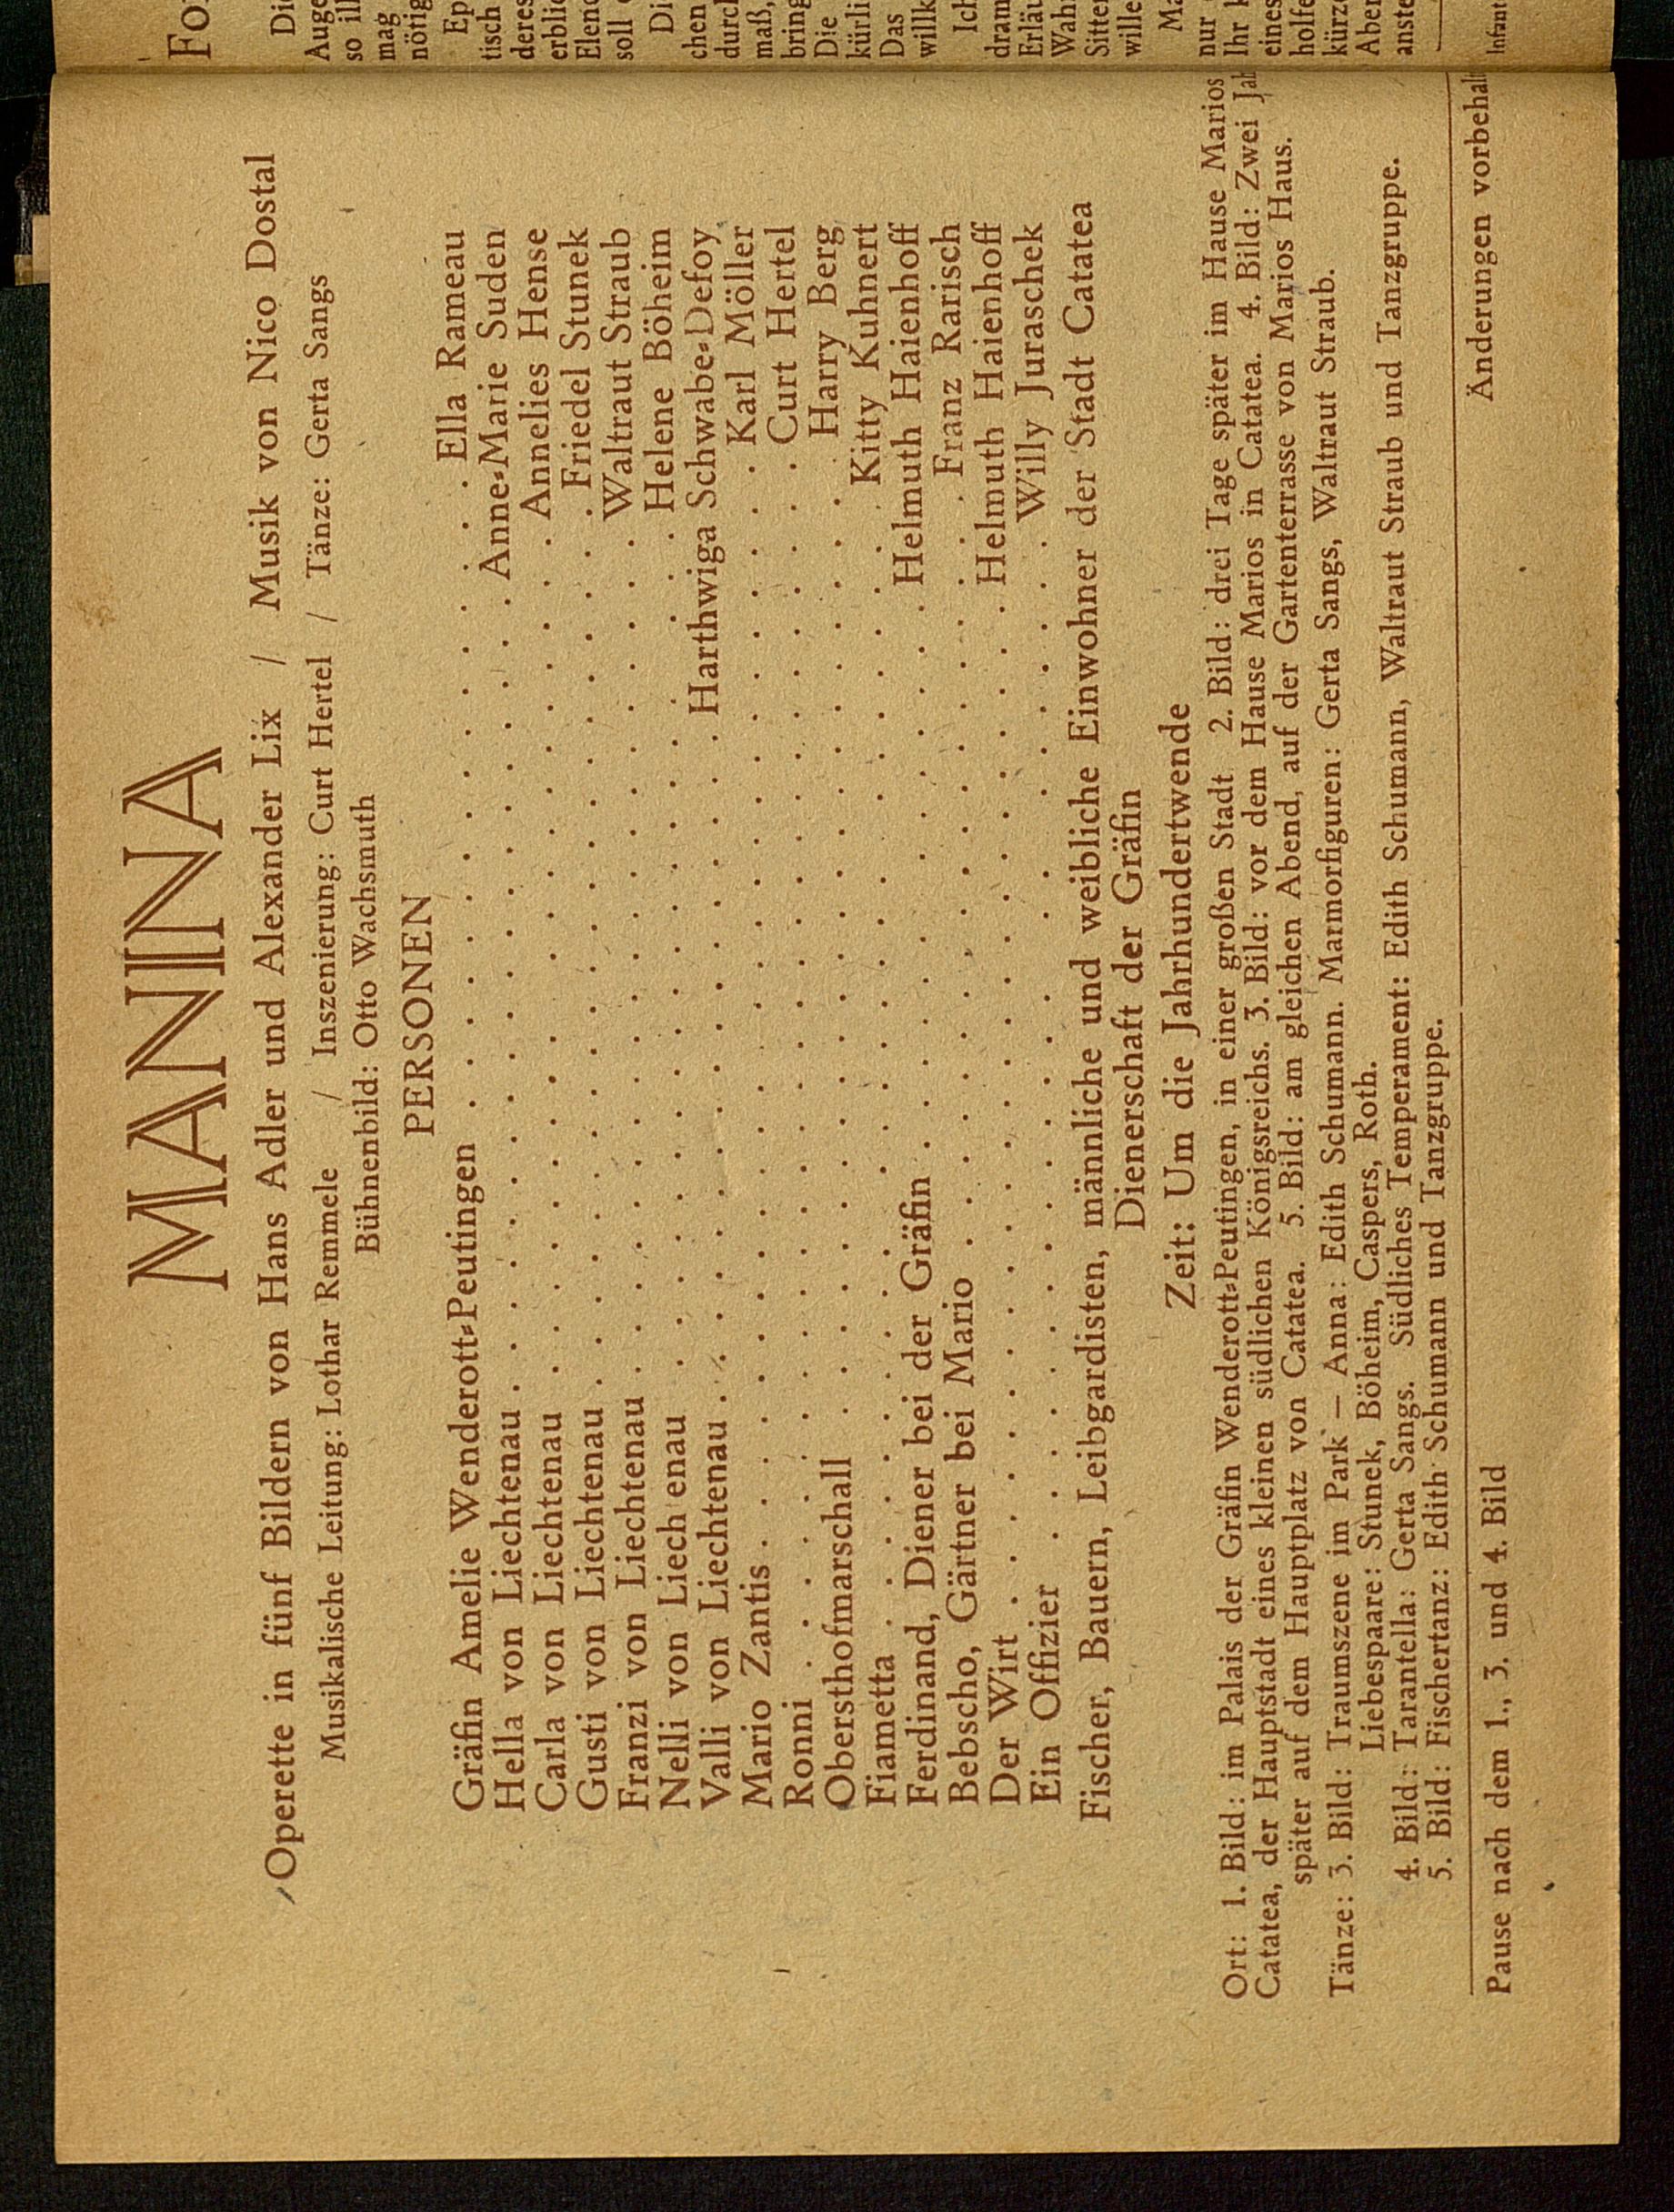 MANINA
Operette in fünf Bildern von Hans Adler und Alexander Lix / Musik von Nico Dostal
Musikalische Leitung: Lothar Remmele / Inszenierung: Curt Hertel / Tänze: Gerta Sangs
Bühnenbild: Otto Wachsmuth
PERSONEN
Gräfin Amelie Wenderott-Peutingen . . . . . . . . . . Ella Rameau
Hella von Liechtenau . . . . . . . . . . Anne-Marie Suden
Carla von Liechtenau . . . . . . . . . . Annelies Hense
Gusti von Liechtenau . . . . . . . . . . Friedel Stunek
Franzi von Liechtenau . . . . . . . . . . Waltraut Straub
Nelli von Liech enau . . . . . . . . . . Helene Böheim
Valli von Liechtenau . . . . . . . . . . Harthwiga Schwabe-Defoy
Mario Zantis . . . . . . . . . . Karl Möller
Ronni . . . . . . . . . . Curt Hertel
Obersthofmarschall . . . . . . . . . . Harry Berg
Fiametta . . . . . . . . . . Kitty Kuhnert
Ferdinand, Diener bei der Gräfin . . . . . . . . . . Helmuth Haienhoff
Bebscho, Gärtner bei Mario . . . . . . . . . . Franz Rarisch
Der Wirt . . . . . . . . . . Helmuth Haienhoff
Ein Offizier . . . . . . . . . . Willy Juraschek
Fischer, Bauern, Leibgardisten, männliche und weibliche Einwohner der Stadt Catatea
Dienerschaft der Gräfin
Zeit: Um die Jahrhundertwende
Ort: 1. Bild: im Palais der Gräfin Wenderott-Peutingen, in einer großen Stadt 2. Bild: drei Tage später im Hause Marios
Catatea, der Hauptstadt eines kleinen südlichen Königsreichs. 3. Bild: vor dem Hause Marios in Catatea. 4. Bild: Zwei Jah
später auf dem Hauptplatz von Catatea. 5. Bild: am gleichen Abend, auf der Gartenterrasse von Marios Haus.
Tänze: 3. Bild: Traumszene im Park — Anna: Edith Schumann. Marmorfiguren: Gerta Sangs, Waltraut Straub.
Liebespaare: Stunek, Böheim, Caspers, Roth.
4. Bild: Tarantella: Gerta Sangs. Südliches Temperament: Edith Schumann, Waltraut Straub und Tanzgruppe.
5. Bild: Fischertanz: Edith Schumann und Tanzgruppe.
Pause nach dem 1., 3. und 4. Bild Änderungen vorbehal
Fo
Die
Auge
so ill
mag
nötig
Ep
tisch
deres
erblic
Elend
soll
Di
chen
durch
maß,
bring
Die
kürli
Das
willk
Ich
dram
Erläu
Wahr
Sitten
wille
Ma
nur
Ihr
eines
holfe
kürze
Aber
anste
Infant